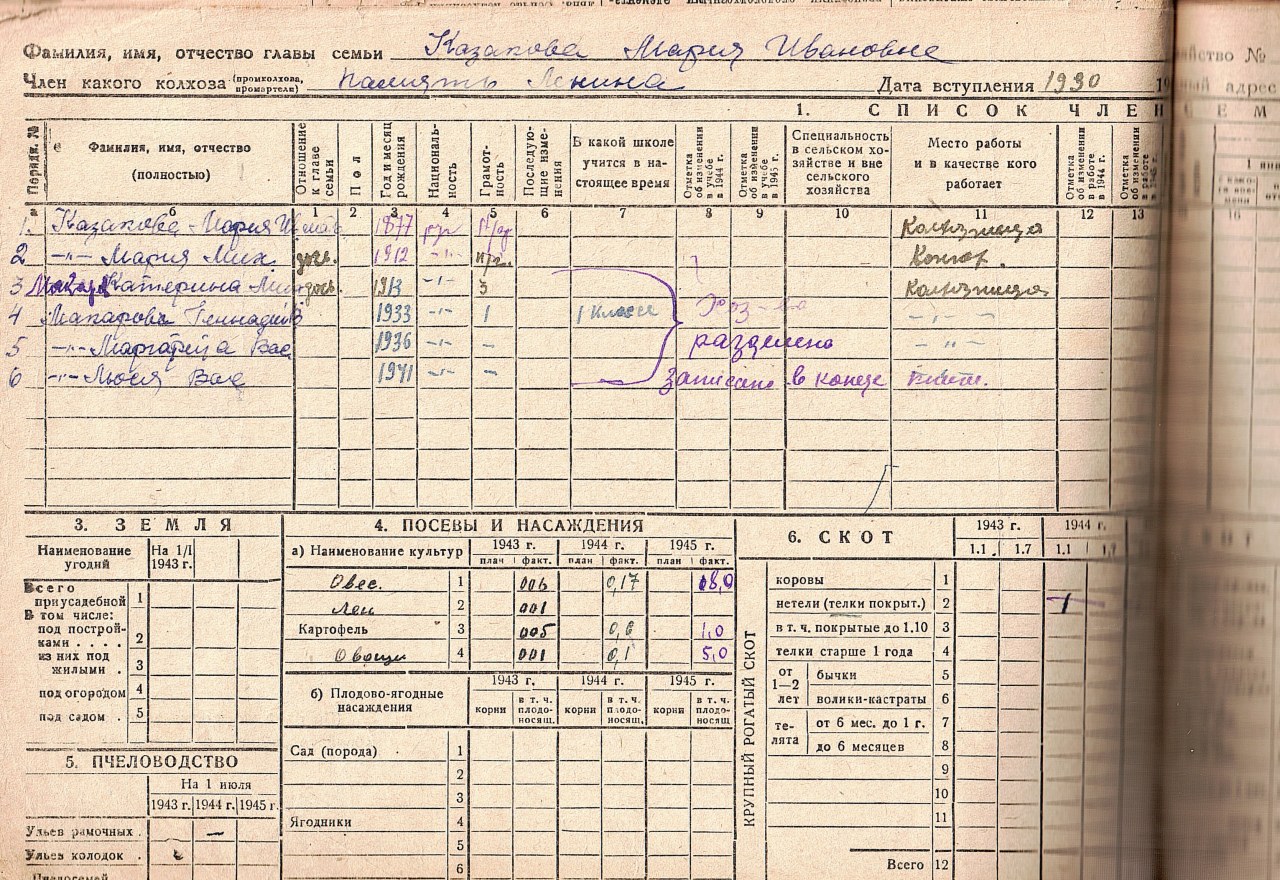 Фамилия, имя, отчество главы семьи Казакова Мария Ивановна
Член какого колхоза (промколхоза, промартели) Памяти Ленина Дата вступления 1930 19
яйство №
ный адрес
1. СПИСОК ЧЛЕН
Порядк. № Фамилия, имя, отчество (полностью) Отношение к главе семьи Пол Год и месяц рождения Националь-ность Грамот-ность Последую-щие изме-нения В какой школе учится в на-стоящее время Отметка об изменении в учебе в 1944 г. Отметка об изменении в учебе в 1945 г. Специальность в сельском хо-зяйстве и вне сельского хозяйства Место работы и в качестве кого работает Отметка об изменении в работе в 1944 г. Отметка об изменении в работе
б 1 2 3 4 5 6 7 8 9 10 11 12 13 16
1. Казакова Мария Ив 1877 Колхозница
2 -"- Мария Мих. дочь. 1912 -"- н/г. Контор.
3 Катерина дочь. 1913 -"- 3 Колхозница
4 Макарова Геннадий 1933 -"- 1 1 Класс Хоз-во -"-
5 -"- Маргарита Вас 1936 -"- - разделено -"-
6 -"- Люся Вас 1941 -"- - записано в конце
3. ЗЕМЛЯ
Наименование угодий На 1/I 1943 г.
Всего приусадебной 1
В том числе:
под построй-ками . . . . 2
из них под жилыми . 3
под огородом 4
под садом . 5
5. ПЧЕЛОВОДСТВО
На 1 июля
1943 г. 1944 г. 1945 г.
Ульев рамочных . –
Ульев колодок .
4. ПОСЕВЫ И НАСАЖДЕНИЯ
а) Наименование культур 1943 г. 1944 г. 1945 г.
план факт. план факт. план факт.
Овес. 1 006 0,17 18,0
Лен 2 001
Картофель 3 005 0,6 1,0
Овощи 4 001 0,1 5,0
б) Плодово-ягодные насаждения 1943 г. 1944 г. 1945 г.
корни в т. ч. плодо-носящ. корни в т. ч. плодо-носящ. корни в т. ч. плодо-носящ
Сад (порода) . 1
2
3
Ягодники 4
5
6
6. СКОТ 1943 г. 1944 г.
1.1 1.7 1.1 1.7
КРУПНЫЙ РОГАТЫЙ СКОТ
коровы 1
нетели (телки покрыт.) 2 1
в т. ч. покрытые до 1.10 3
телки старше 1 года 4
от 1—2 лет бычки 5
волики-кастраты 6
те-лята от 6 мес. до 1 г. 7
до 6 месяцев 8
9
10
11
Всего 12